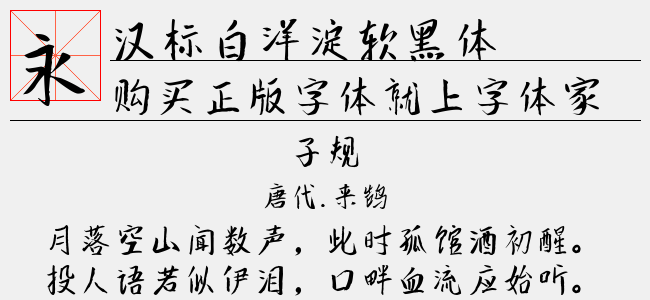 永
汉标白洋淀软黑体
购买正版字体就上字体家
子规
唐代.来鹄
月落空山闻数声，此时孤馆酒初醒。
投人语若似伊泪，口畔血流应始听。